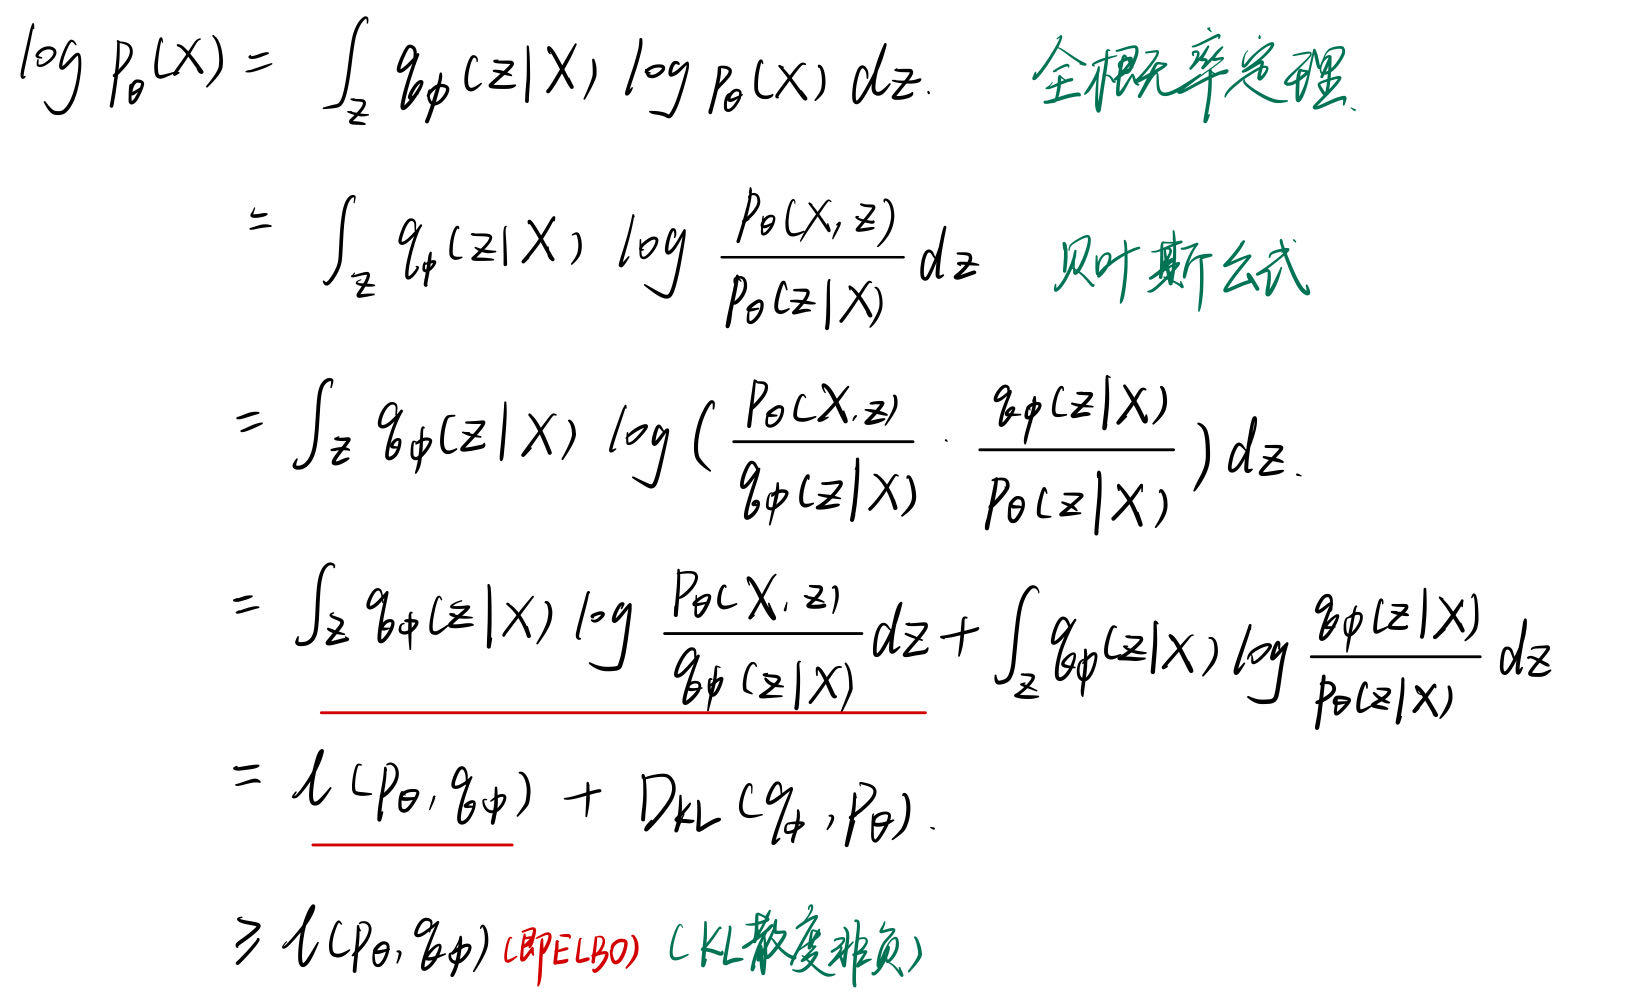 log pθ(X) = ∫z qφ(z|X) log pθ(X) dz. 全概率定理.
= ∫z qφ(z|X) log pθ(X, z) / pθ(z|X) dz 贝叶斯公式
= ∫z qφ(z|X) log ( pθ(X, z) / qφ(z|X) · qφ(z|X) / pθ(z|X) ) dz.
= ∫z qφ(z|X) log pθ(X, z) / qφ(z|X) dz + ∫z qφ(z|X) log qφ(z|X) / pθ(z|X) dz
= l(pθ, qφ) + DKL(qφ, pθ).
≥ l(pθ, qφ) (即ELBO) (KL散度非负)